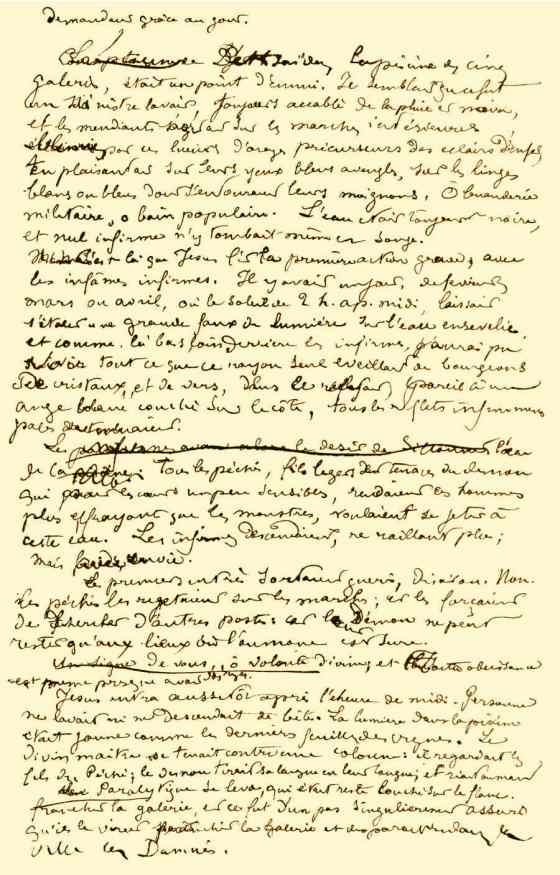 demandent grâce au jour.
Bethsaïda, la piscine des cinq
galeries, était un point d'ennui. Il semblait que ce fût
un sinistre lavoir, toujours accablé de la pluie et
et les mendiants sur les marches intérieures
par ces lueurs d'orage précurseurs des éclairs d'enfer,
en plaisantant sur leurs yeux bleus aveugles, sur les linges
blancs ou bleus dont s'entouraient leurs moignons. Ô buanderie
militaire, ô bain populaire. L'eau était toujours noire,
et nul infirme n'y tombait même en songe.
C'est là que Jésus fit la première action grave, avec
les infâmes infirmes. Il y avait un jour, de février,
mars ou avril, où le soleil de 2 h. ap. midi, laissait
s'étaler une grande faux de lumière sur l'eau ensevelie
et comme là-bas, loin derrière les infirmes, j'aurais pu
voir tout ce que ce rayon seul éveillait de bourgeons
de cristaux, et de vers, dans le reflet, pareil à un
ange blanc couché sur le côté, tous les reflets infiniment
pâles remuaient.
l'eau
de la tous les péchés, fils légers et tenaces du démon
qui pour les cœurs un peu sensibles, rendaient ces hommes
plus effrayants que les monstres, voulaient se jeter à
cette eau. Les infirmes descendaient, ne raillant plus;
mais avec envie.
Les premiers entrés sortaient guéris, disait-on. Non.
Les péchés les rejetaient sur les marches; et les forçaient
de chercher d'autres postes: car leur Démon ne peut
rester qu'aux lieux où l'aumône est sûre.
Un signe de vous, ô volonté divine, et toute obéissance
est prévue presque avant
Jésus entra aussitôt après l'heure de midi. Personne
ne lavait ni ne descendait de bêtes. La lumière dans la piscine
était jaune comme les dernières feuilles des vignes. Le
divin maître se tenait contre une colonne: il regardait les
fils du Péché; le démon tirait sa langue en leur langue; et riait
Le Paralytique se leva, qui était resté couché sur le flanc,
franchit la galerie, et ce fut d'un pas singulièrement assuré
qu'ils le virent franchir la galerie et disparaître dans la
ville, les Damnés.